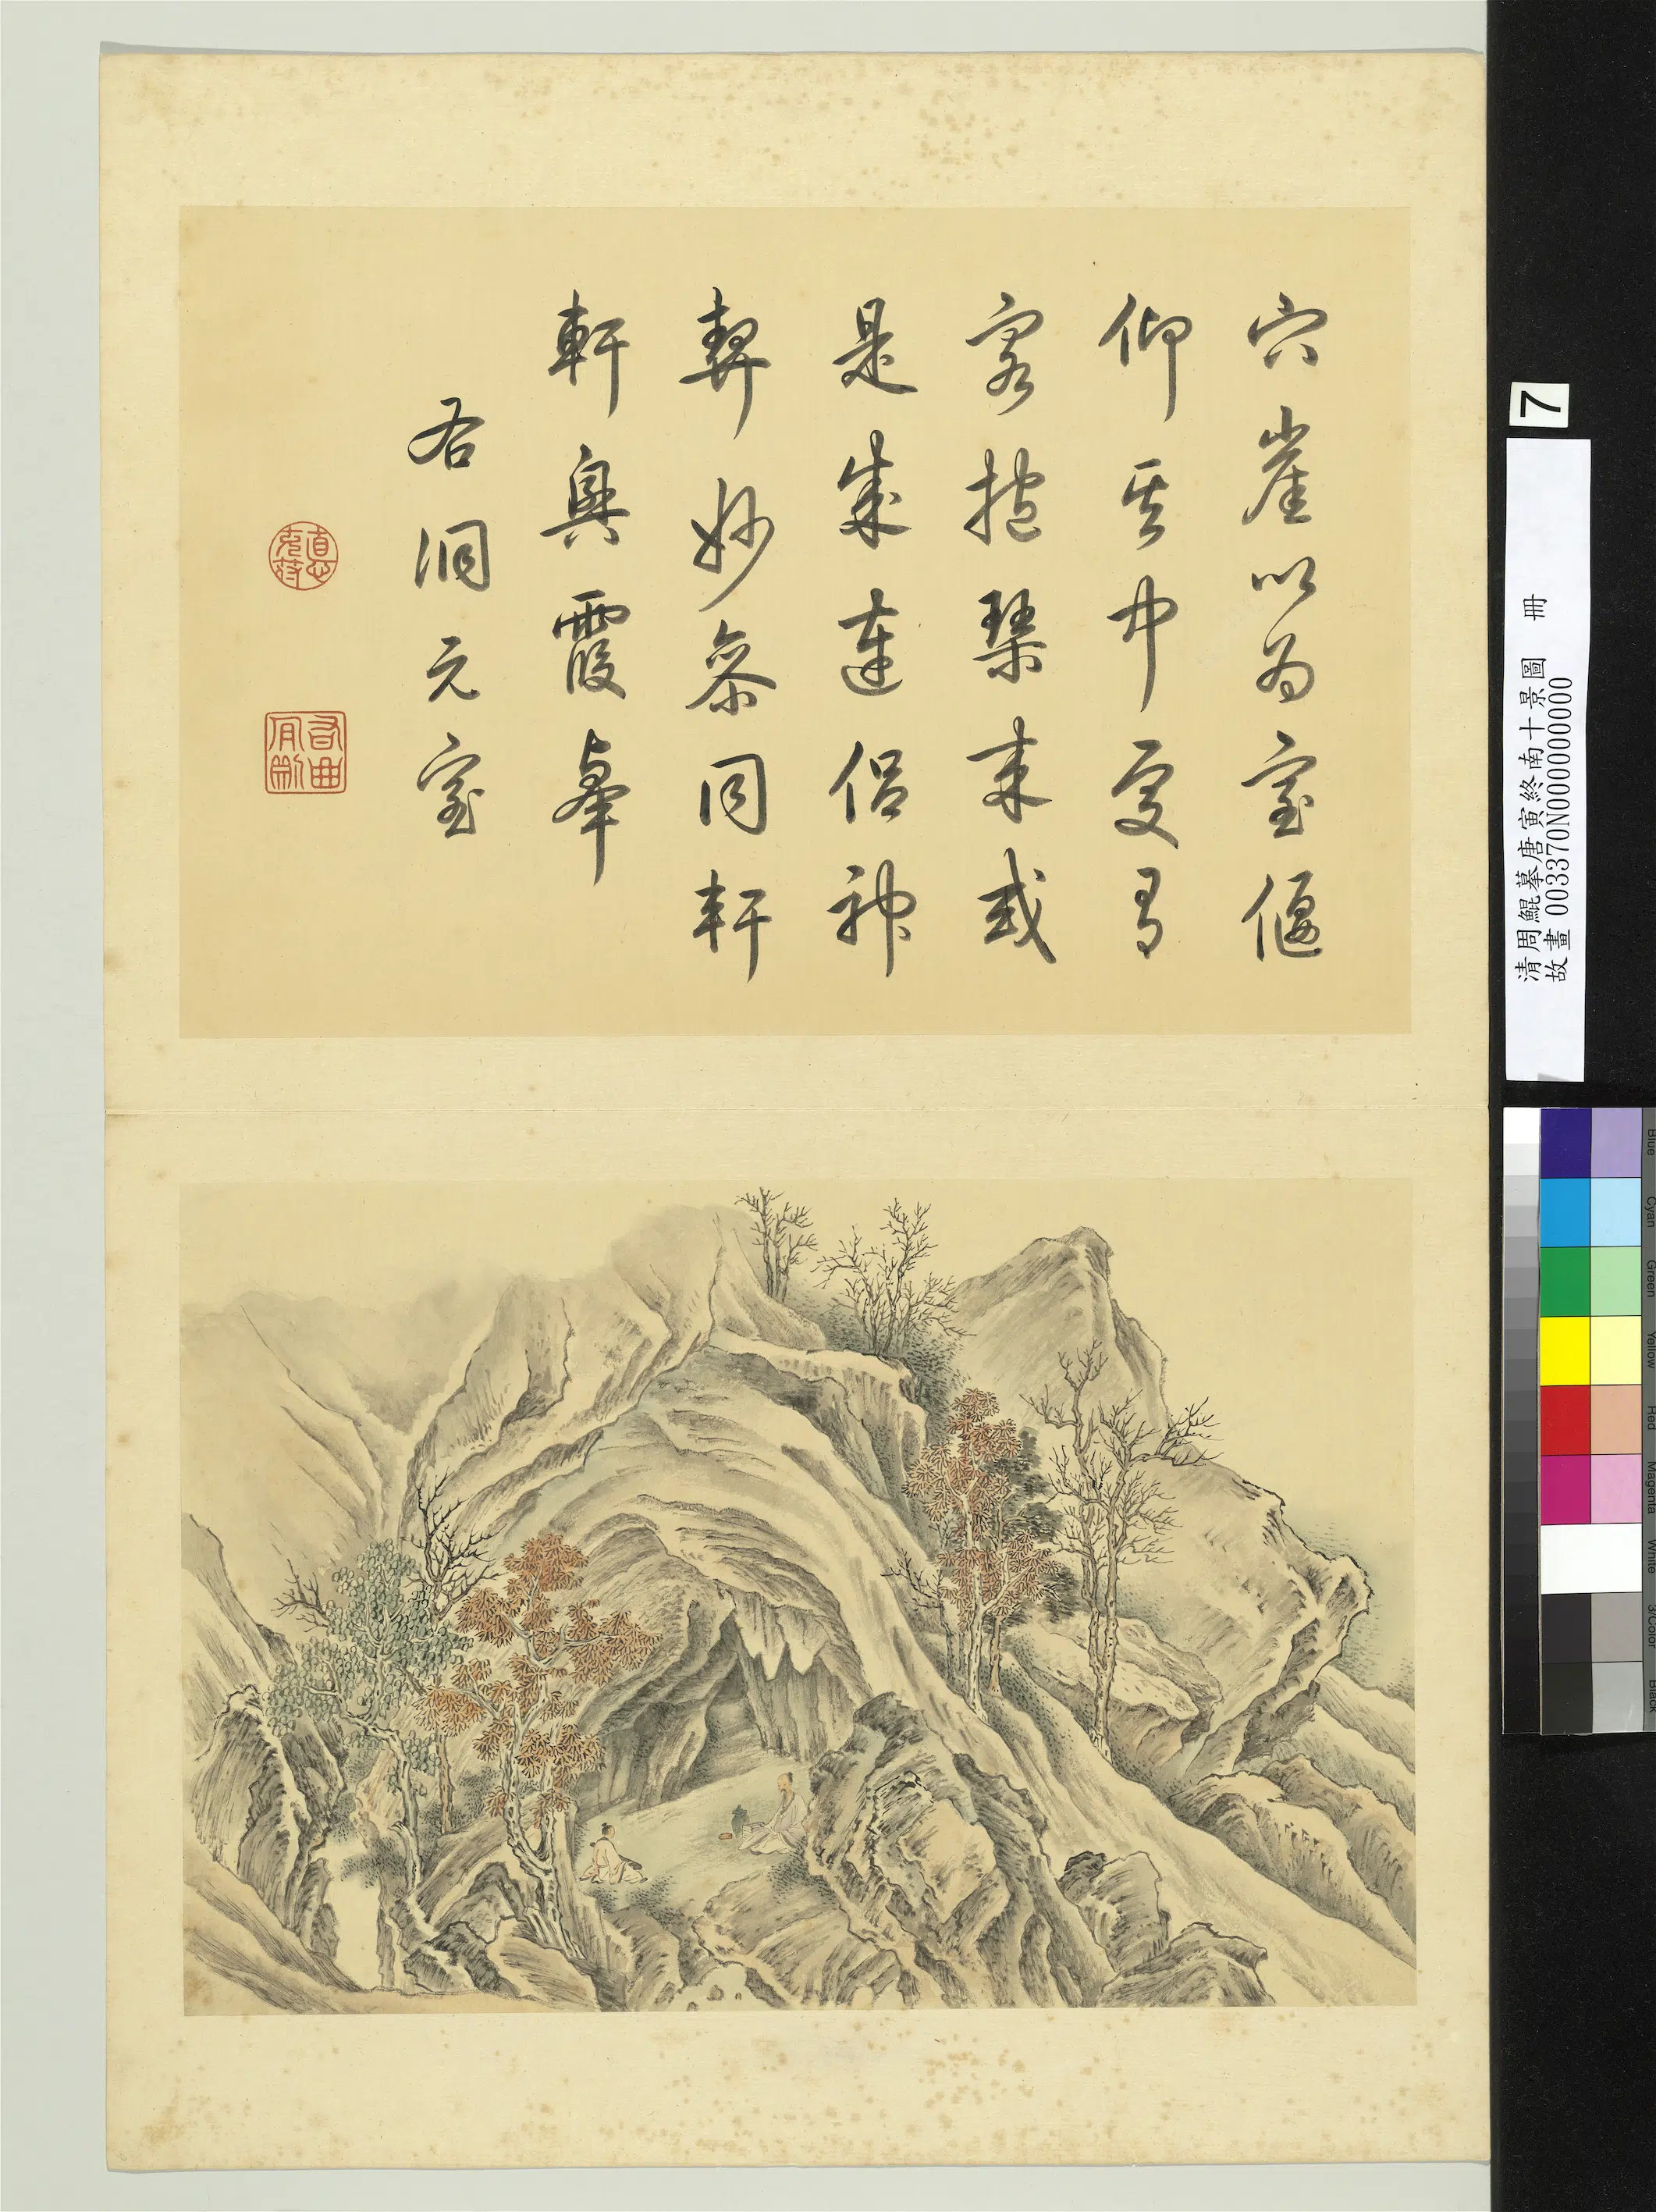 穴崖以为室偃
仰其中更有
客抱琴来或
是成連侣神
契妙参同軒
軒興霞舉
右洞元室
7
清周鯤摹唐寅終南十景圖 冊
故畫 003370N000000000
Blue
Cyan
Green
Yellow
Red
Magenta
White
3/Color
Black